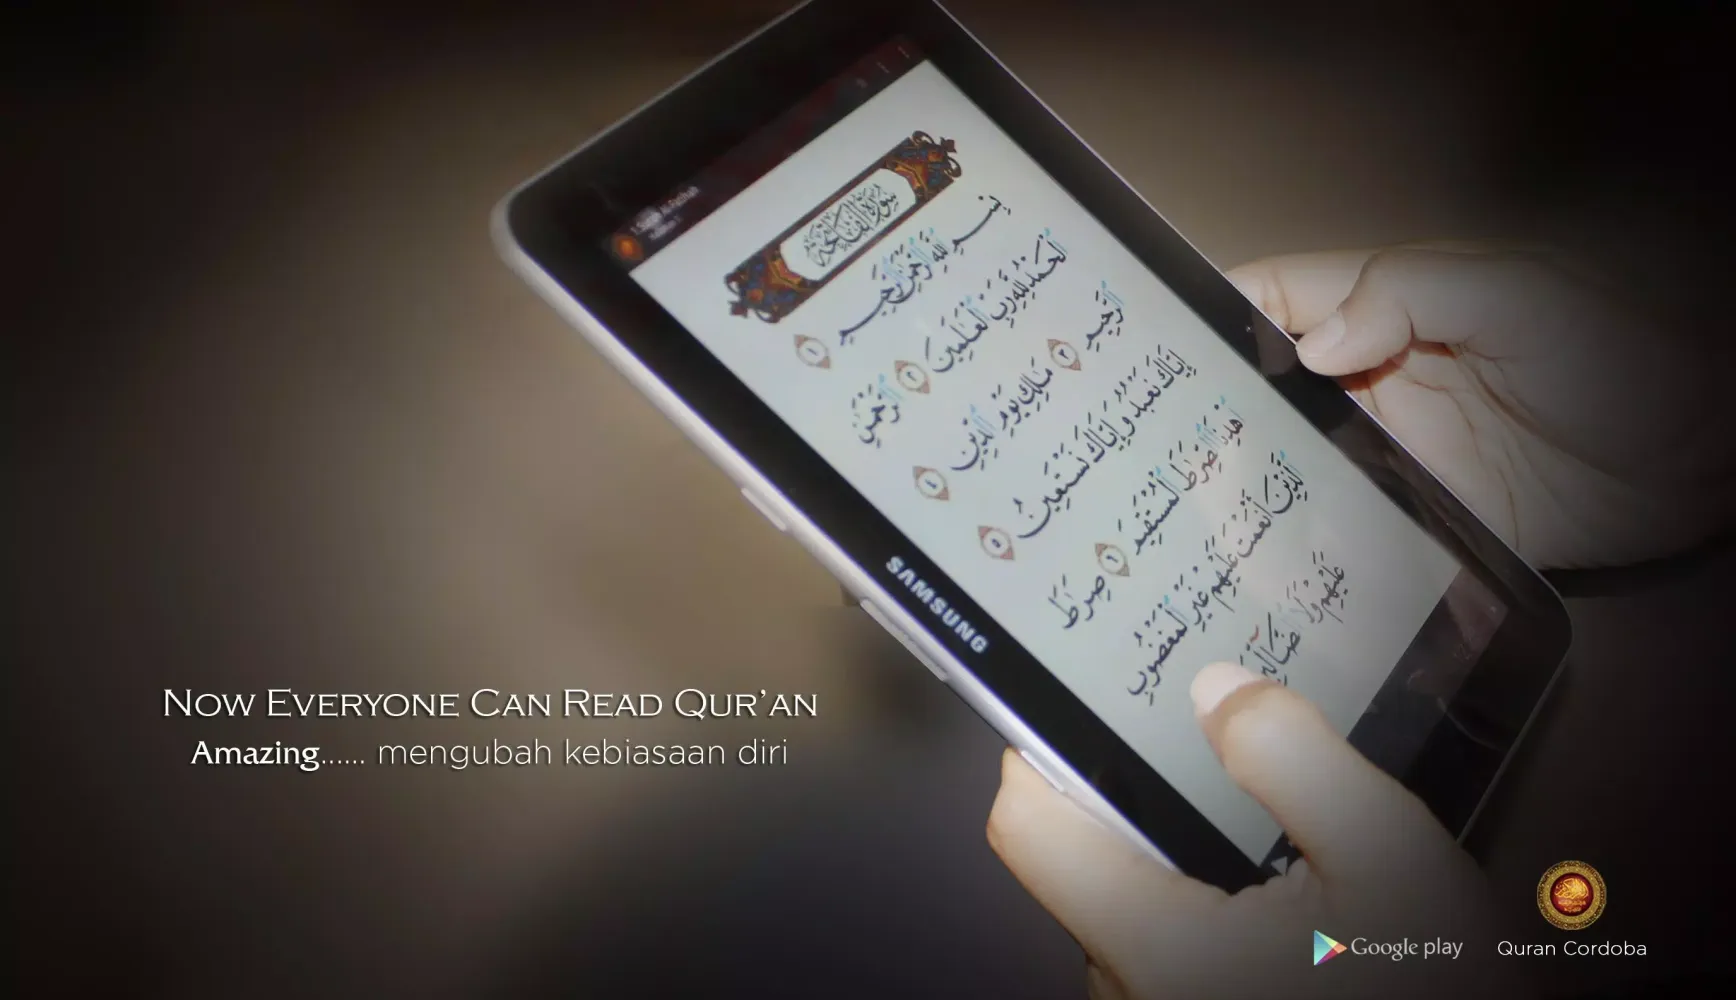 1.Surah Al-Fatihah
سورة الفاتحة
بِسْمِ ٱللَّهِ ٱلرَّحْمَٰنِ ٱلرَّحِيمِ ١
ٱلْحَمْدُ لِلَّهِ رَبِّ ٱلْعَٰلَمِينَ ٢ ٱلرَّحْمَٰنِ
ٱلرَّحِيمِ ٣ مَٰلِكِ يَوْمِ ٱلدِّينِ ٤
إِيَّاكَ نَعْبُدُ وَإِيَّاكَ نَسْتَعِينُ ٥
ٱهْدِنَا ٱلصِّرَٰطَ ٱلْمُسْتَقِيمَ ٦ صِرَٰطَ
ٱلَّذِينَ أَنْعَمْتَ عَلَيْهِمْ غَيْرِ ٱلْمَغْضُوبِ
عَلَيْهِمْ وَلَا ٱلضَّآلِّينَ
SAMSUNG
NOW EVERYONE CAN READ QUR’AN
Amazing...... mengubah kebiasaan diri
Google play
Quran Cordoba